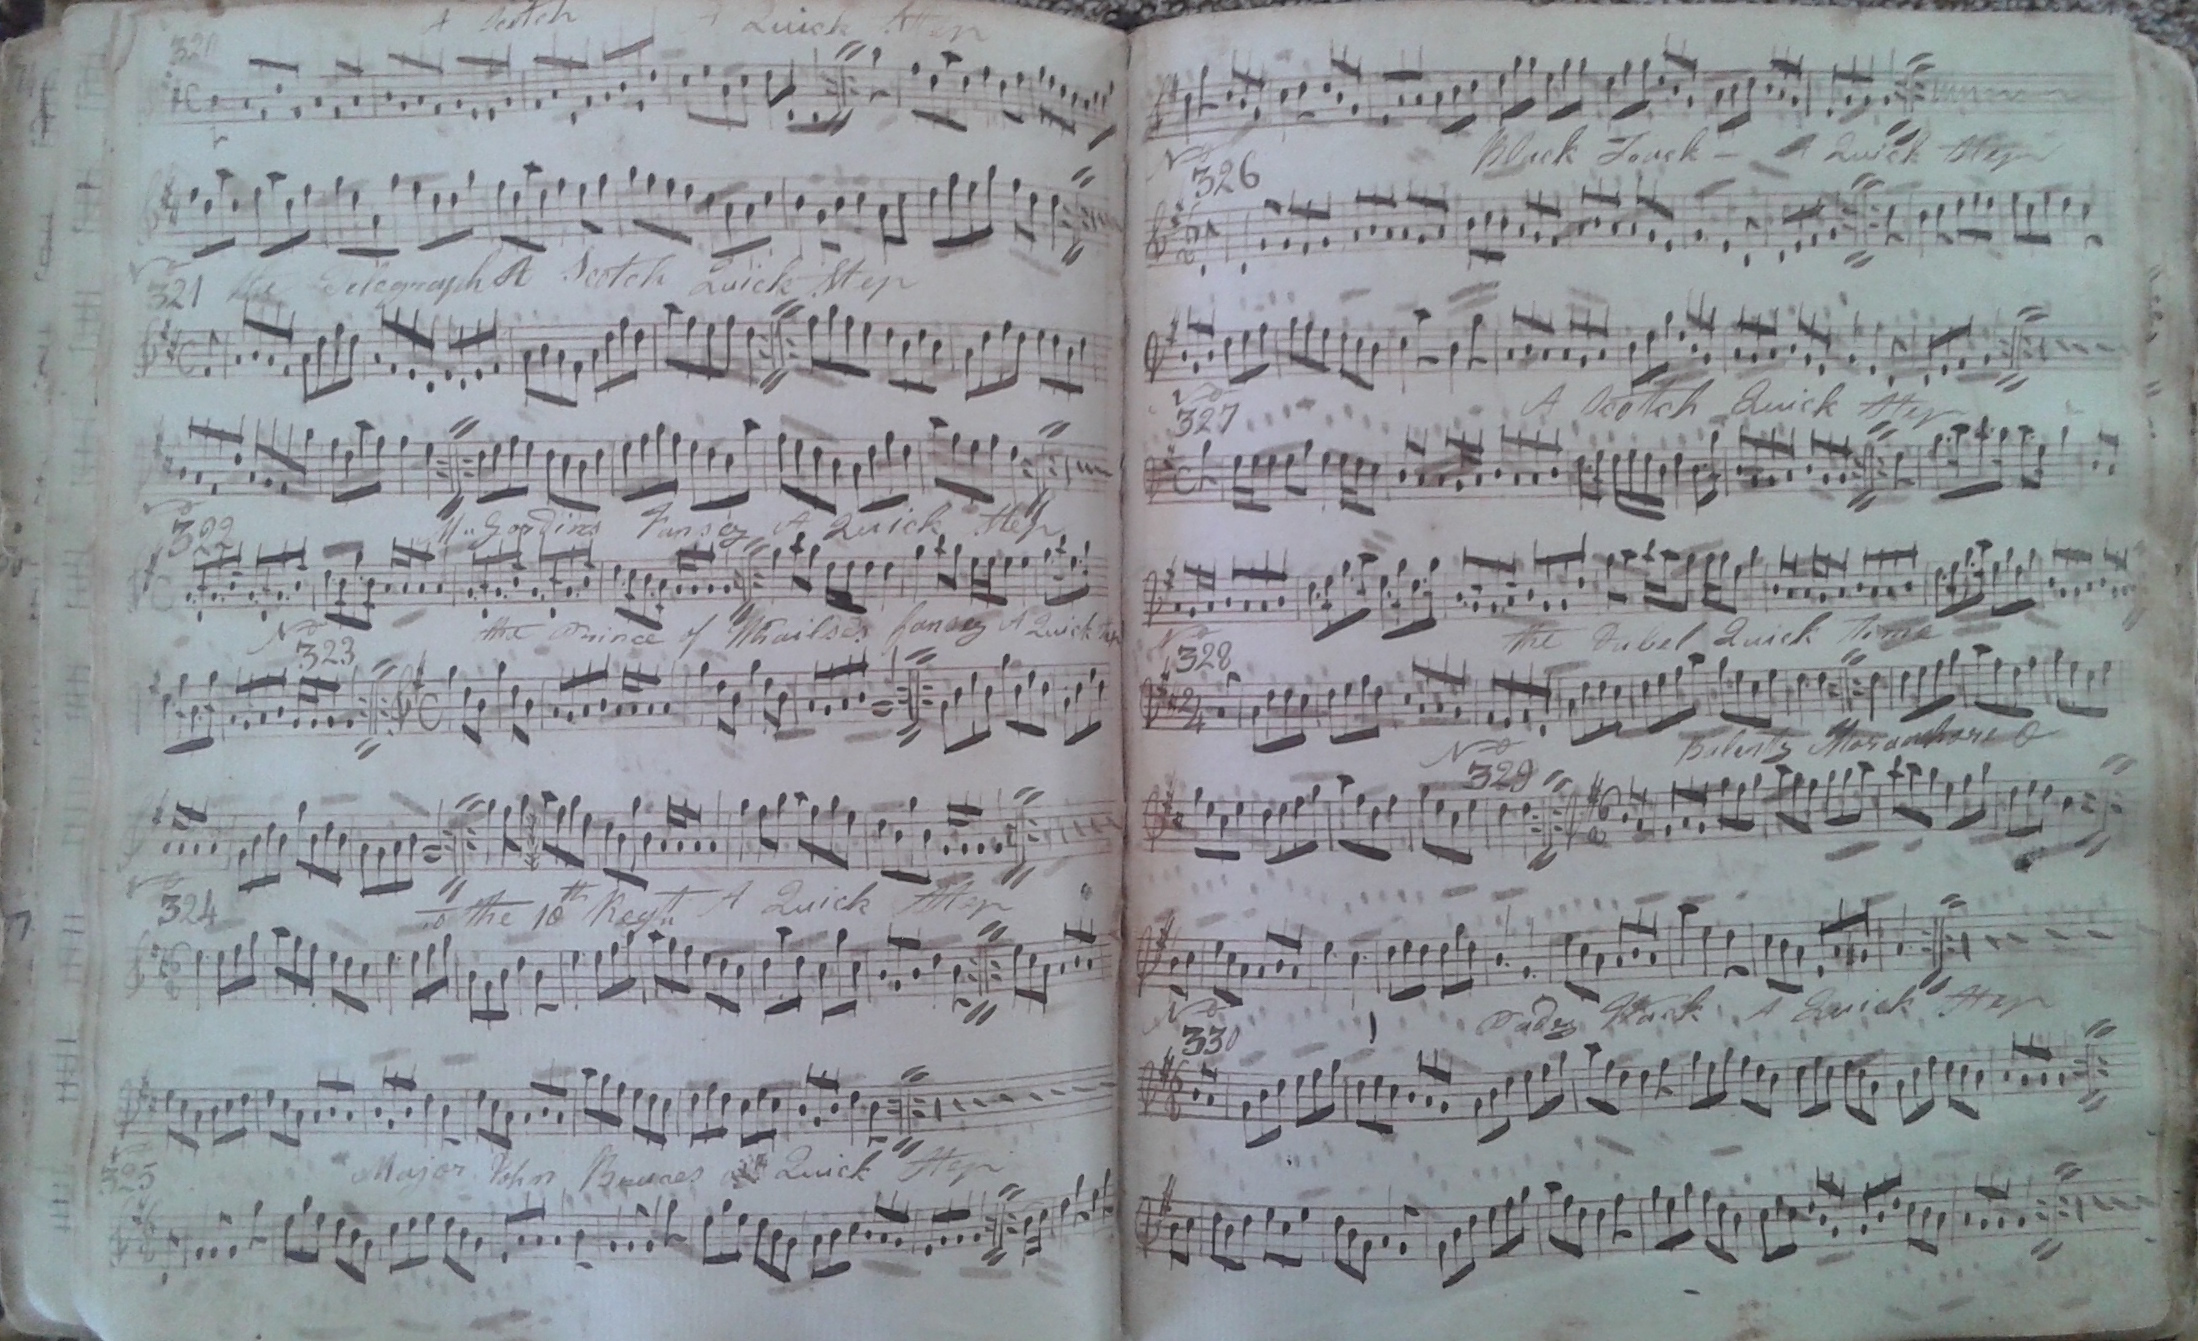 320 A Scotch A Quick Step
No
321 the Telegraph A Scotch Quick Step
No
322 A Quick Step
No
323 the Prince of Whailses fansey A Quick Step
No
324 To the 10th Regt. A Quick Step
325 Major John Quick Step
No
326 Black Joack - A Quick Step
No
327 A Scotch Quick Step
No
328 the Dubel Quick time
No
329
No
330 Pady A Quick Step